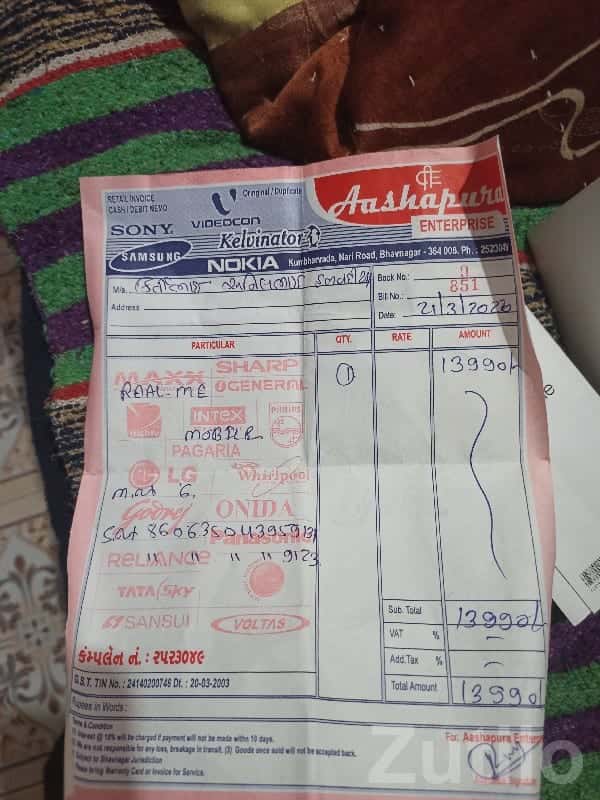 RETAIL INVOICE
CASH / DEBIT MEMO
Original / Duplicate
Aashapura
ENTERPRISE
SONY
VIDEOCON
Kelvinator
SAMSUNG
NOKIA
Kumbharvada, Nari Road, Bhavnagar - 364 006. Ph. : 2523049
M/s.
Address
Book No.: 9
Bill No.: 851
Date: 21/3/2020
PARTICULAR QTY. RATE AMOUNT
MAXX SHARP
GENERAL
REAL-ME 1 13990/-
INTEX PHILIPS
MOBILE
PAGARIA
LG Whirlpool
Godrej ONIDA
Panasonic
RELIANCE " " " 9123
TATA Sky
SANSUI VOLTAS
Sub. Total 13990/-
VAT % -
Add.Tax % -
Total Amount 13990/-
કંમ્પલેન નં. : ૨૫૨૩૦૪૯
G.S.T. TIN No. : 24140200746 Dt. : 20-03-2003
Rupees in Words :
Terms & Condition
(1) Interest @ 18% will be charged if payment will not be made within 10 days.
(2) We are not responsible for any loss, breakage in transit. (3) Goods once sold will not be accepted back.
Subject to Bhavnagar Jurisdiction
Please bring Warranty Card or Invoice for Service.
For, Aashapura Enterp